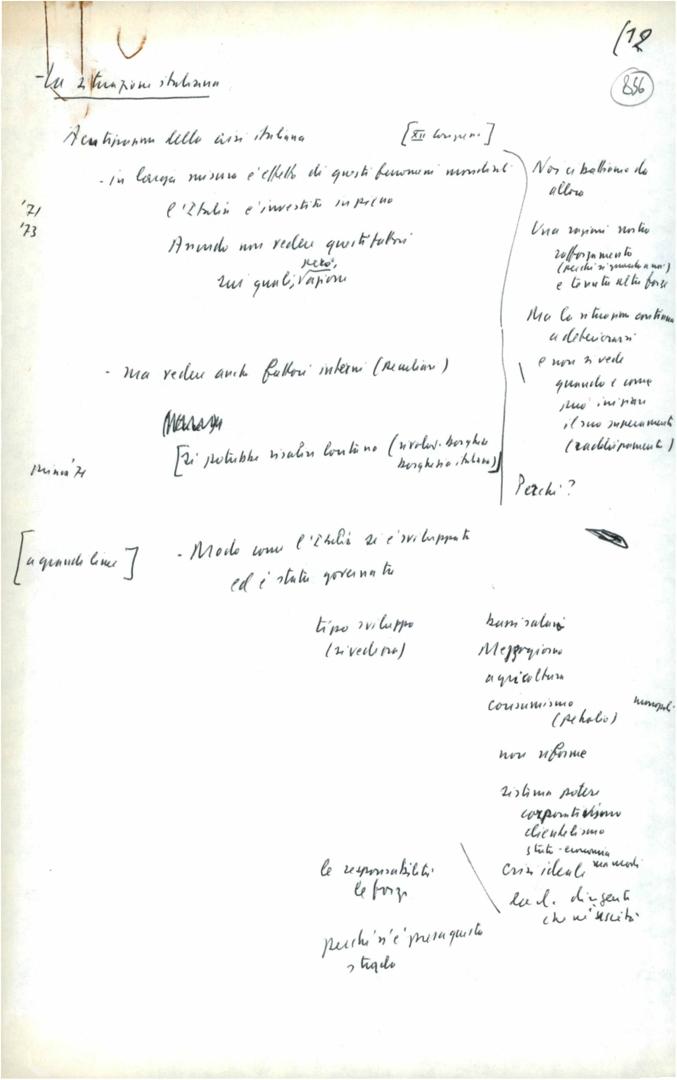 (12
856
- La situazione italiana
Acutizzazione della crisi italiana [XII Congresso]
- in larga misura è effetto di questi fenomeni mondiali
'71
'73
l'Italia è investita in pieno
Avendo non vedere questi fattori
sui quali, però, ragione
- ma vedere anche fattori interni (peculiari)
prima '71
[Si potrebbe risalire lontano (rivoluz. borghese
borghesia italiana)]
Noi ci battiamo da
allora
Una ragione nostro
rafforzamento
(perché si guarda a noi)
e tenuta altre forze
Ma la situazione continua
a deteriorarsi
e non si vede
quando e come
può iniziare
il suo superamento
(raddrizzamento)
Perché?
[a grandi linee]
- Modo come l'Italia si è sviluppata
ed è stata governata
tipo sviluppo
(si vedrà)
bassi salari
Mezzogiorno
agricoltura
consumismo monopoli
(petrolio)
non riforme
sistema potere
corporativismo
clientelismo
stato-economia
crisi ideale
le responsabilità
le forze
dirigente
perché si è presa questa
strada